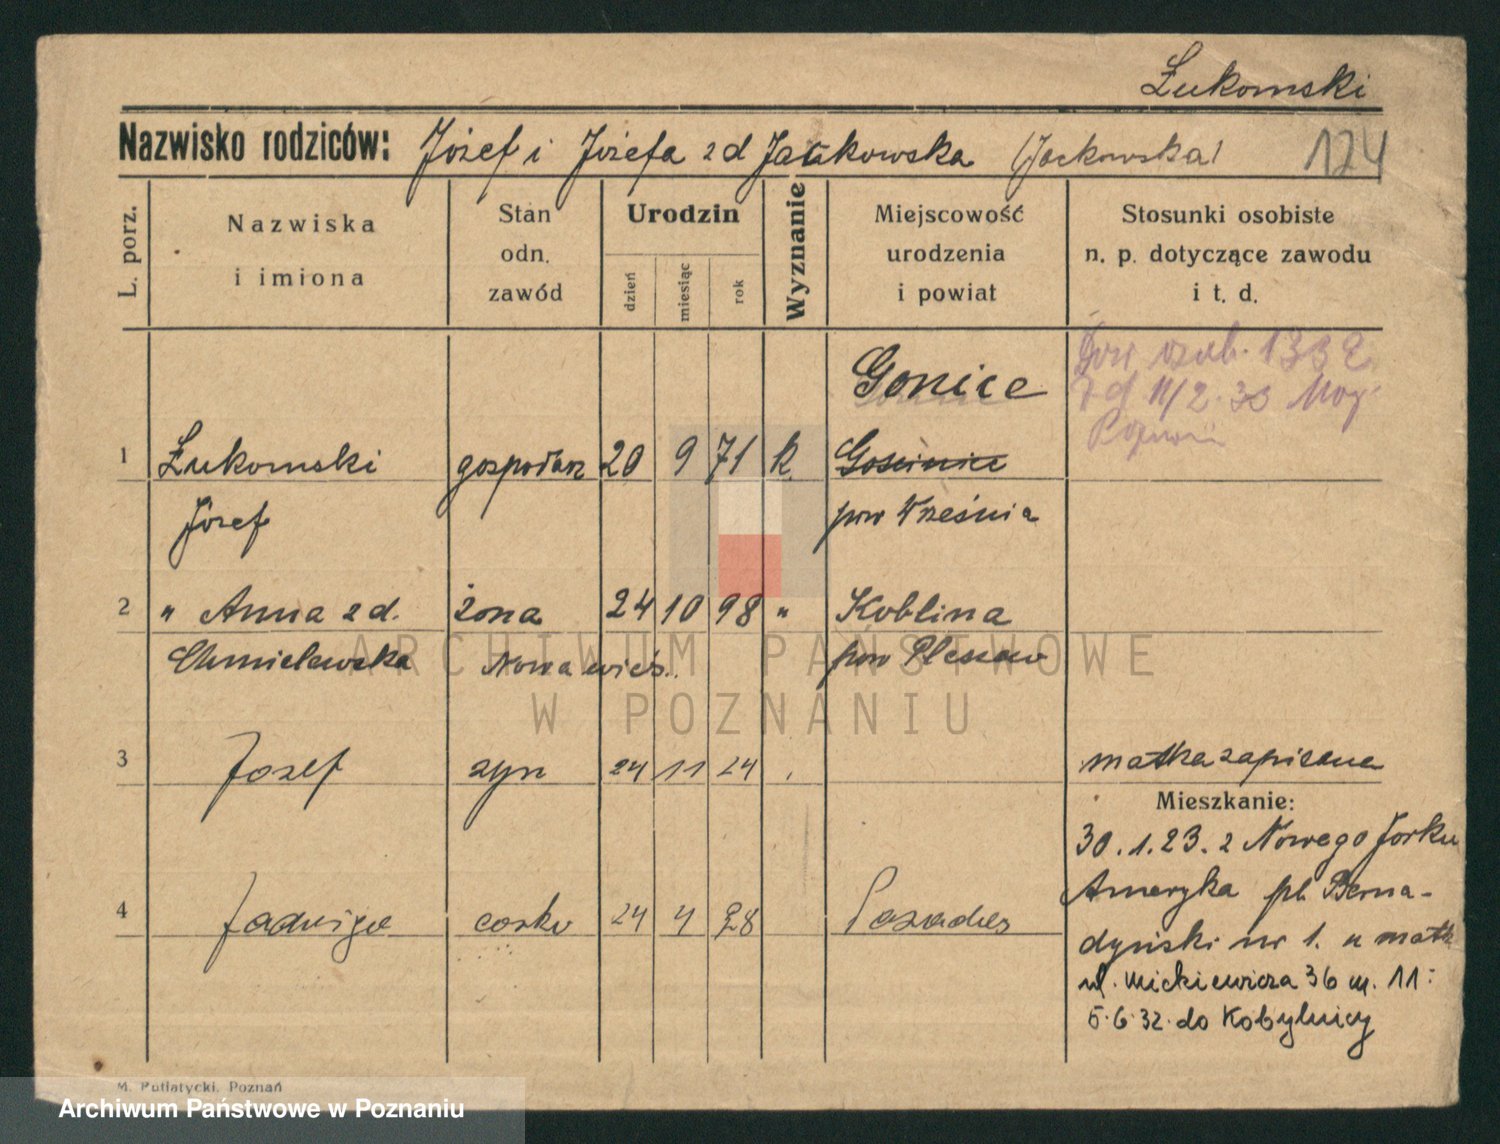 Łukomski
Nazwisko rodziców: Józef i Józefa zd Jackowska (Jackowska) 174
L. porz.
Nazwiska
i imiona
Stan
odn.
zawód
Urodzin
dzień
miesiąc
rok
Wyznanie
Miejscowość
urodzenia
i powiat
Stosunki osobiste
n. p. dotyczące zawodu
i t. d.
Dow osob. 1332
z d 11/2. 33 Mag.
Gonice
1 Łukomski gospodarz 20 9 71 k Gościnice
Józef pow Września
2 " Anna zd. żona 24 10 98 " Koblina
Chmielewska Nowawieś. pow Pleszew
3 Jozef syn 24 11 24 matka zapisana
Mieszkanie:
30.1.23. z Nowego Jorku
Ameryka pl. Berna-
dyński nr 1. u matk
4 Jadwiga corka 24 4 28
ul. Mickiewicza 36 m. 11:
5.6.32. do Kobylnicy
M. Putiatycki, Poznań
ARCHIWUM PAŃSTWOWE
W POZNANIU
Archiwum Państwowe w Poznaniu